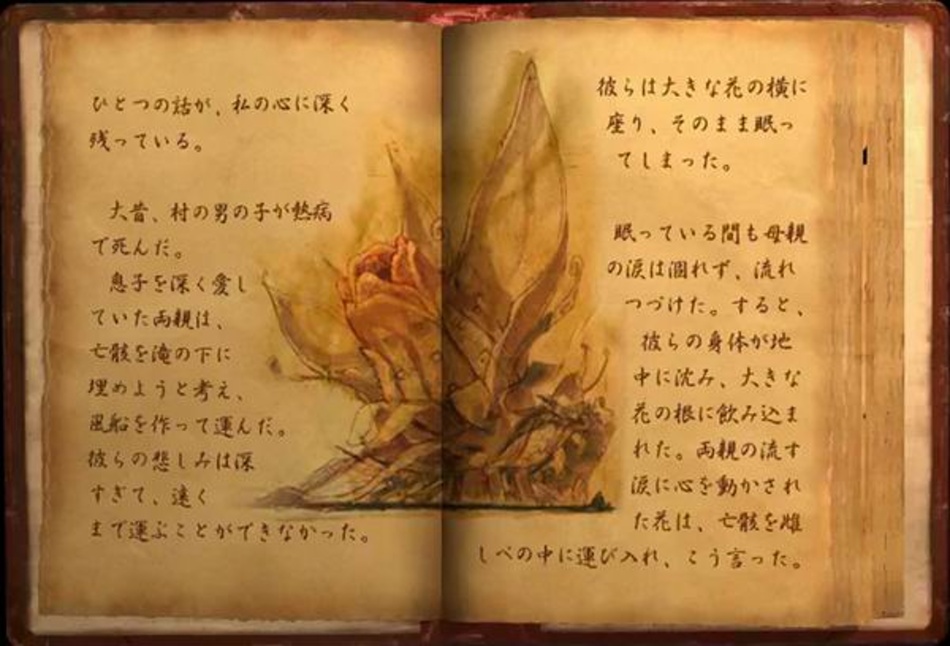 ひとつの話が、私の心に深く
残っている。
大昔、村の男の子が熱病
で死んだ。
息子を深く愛し
ていた両親は、
亡骸を滝の下に
埋めようと考え、
風船を作って運んだ。
彼らの悲しみは深
すぎて、遠く
まで運ぶことができなかった。
彼らは大きな花の横に
座り、そのまま眠っ
てしまった。
眠っている間も母親
の涙は涸れず、流れ
つづけた。すると、
彼らの身体が地
中に沈み、大きな
花の根に飲み込ま
れた。両親の流す
涙に心を動かされ
た花は、亡骸を雌
しべの中に運び入れ、こう言った。